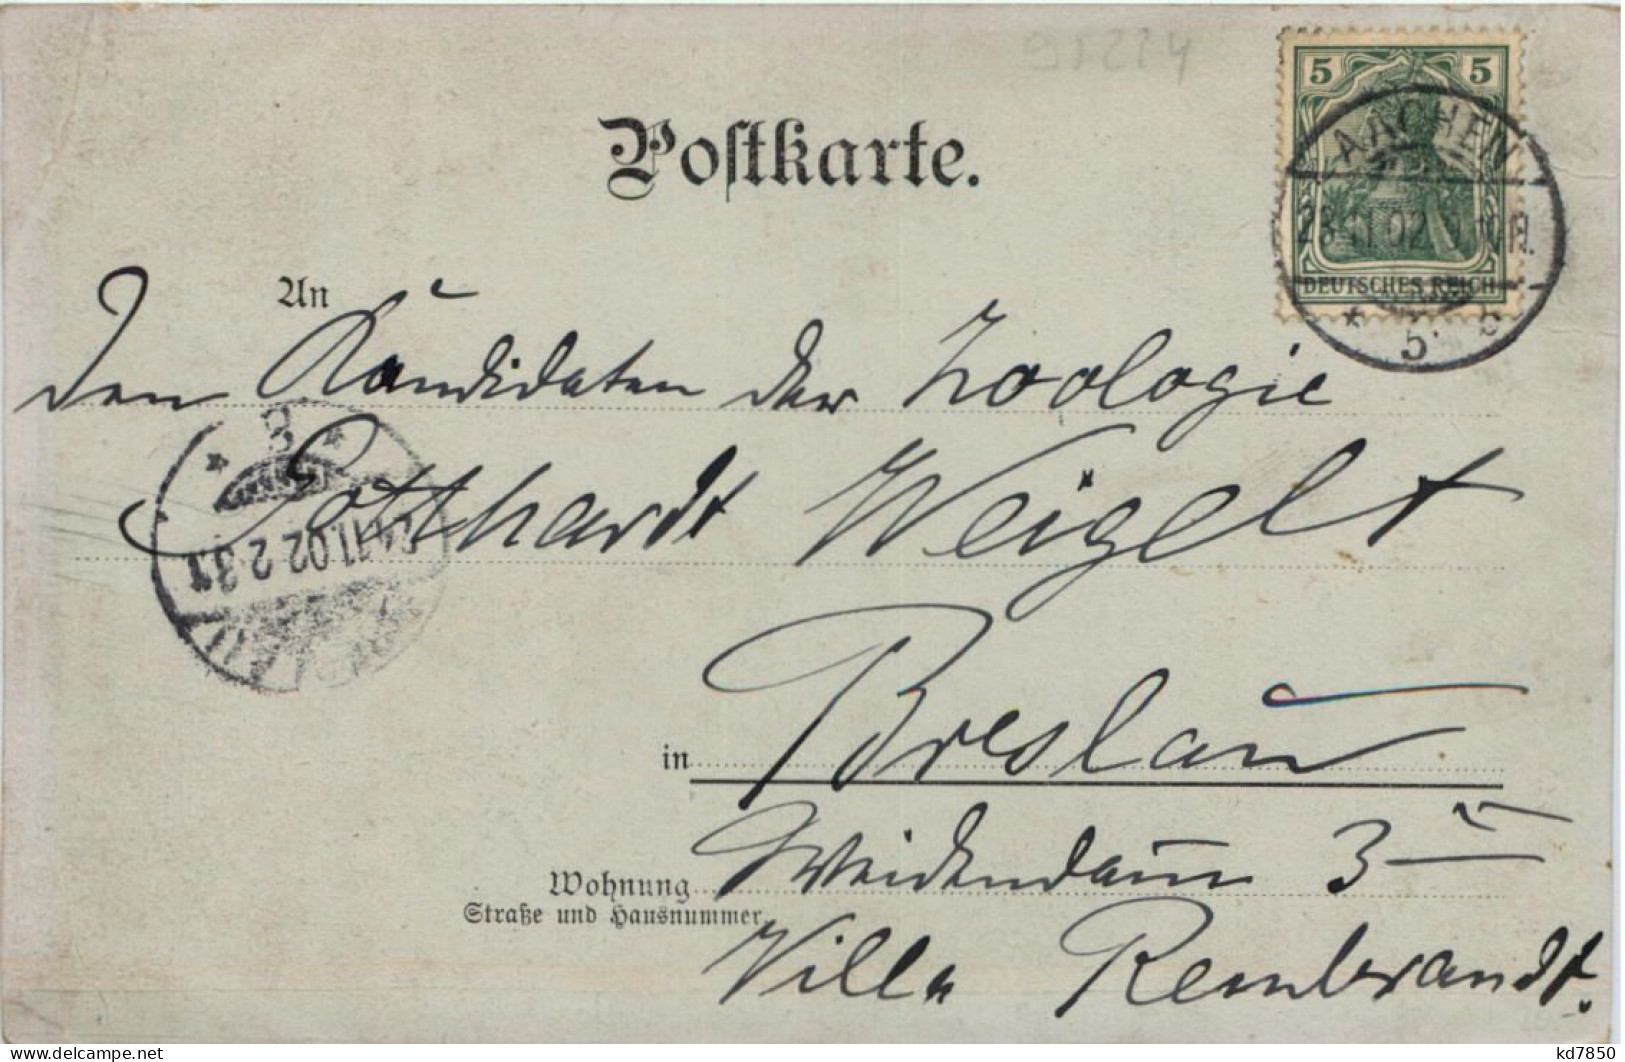 91224
Postkarte.
5 5
DEUTSCHES REICH
AACHEN
23.11.02
5
An
Den Kandidaten der Zoologie
Gotthardt Weigelt
in Breslau
Wohnung Weidendam̄ 3
Straße und Hausnummer
Villa Rembrandt.
11.02 2-3
delcampe.net
kd7850